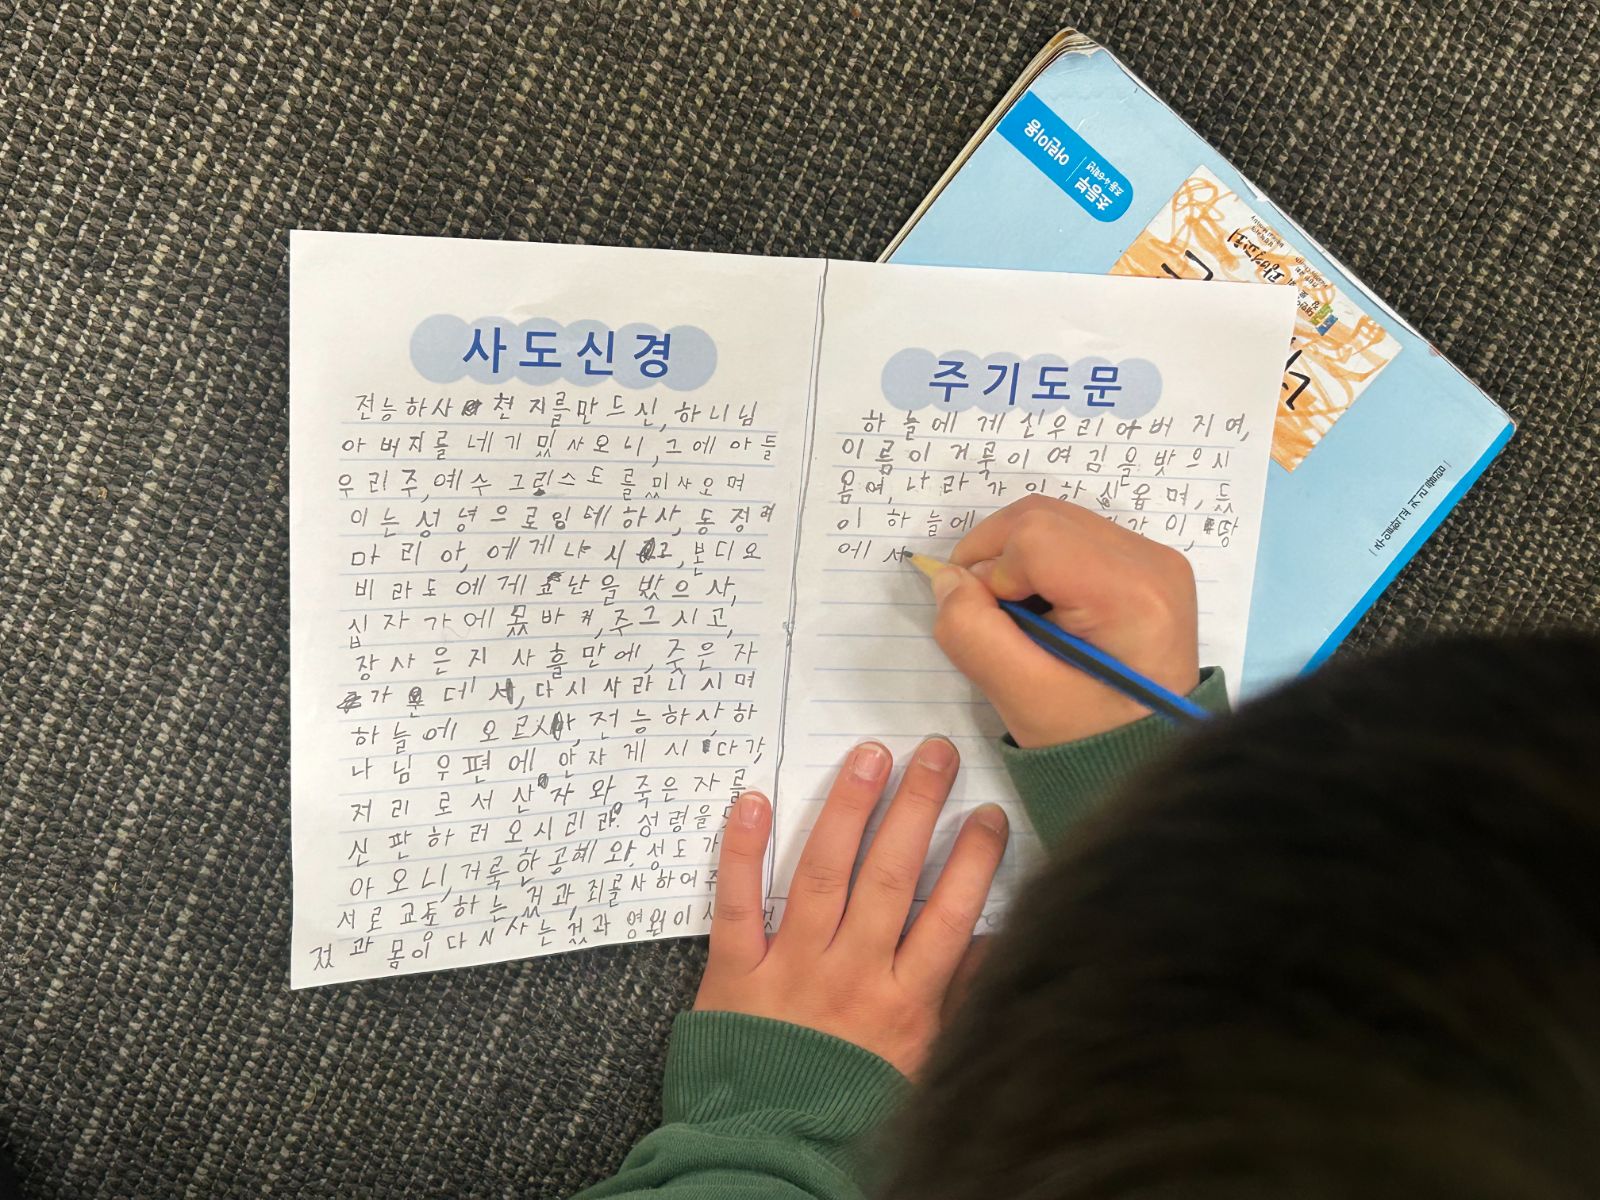 사도신경
전능하사 천지를만드신, 하니님
아버지를 네기밌사오니, 그에아들
우리주, 예수 그리스도를 밌사오며
이는성녕으로잉데하사, 동정
마리아, 에게나시고, 본디오
비라도에게 고난을밨으사,
십자가에못바켜, 주그시고,
장사은지 사흘만에, 줒은자
가온데서, 다시사라니시며
하늘에오르사, 전능하사, 하
나님우편에안자게시다가,
저리로서산자와죽은자를
신판하러오시리라. 성령을
아오니, 거룩한공헤와, 성도가
서로교토하는겄과, 죄롤사하여주
겄과몸이다시사는겄과영원이
주기도문
하늘에게신우리아버지여,
이름이거룩이여김을밨으시
옴여, 나라가임하시옵며, 듰
이하늘에 이, 땅
에서
초등부
초등 4-6학년
어린이용
광명교회